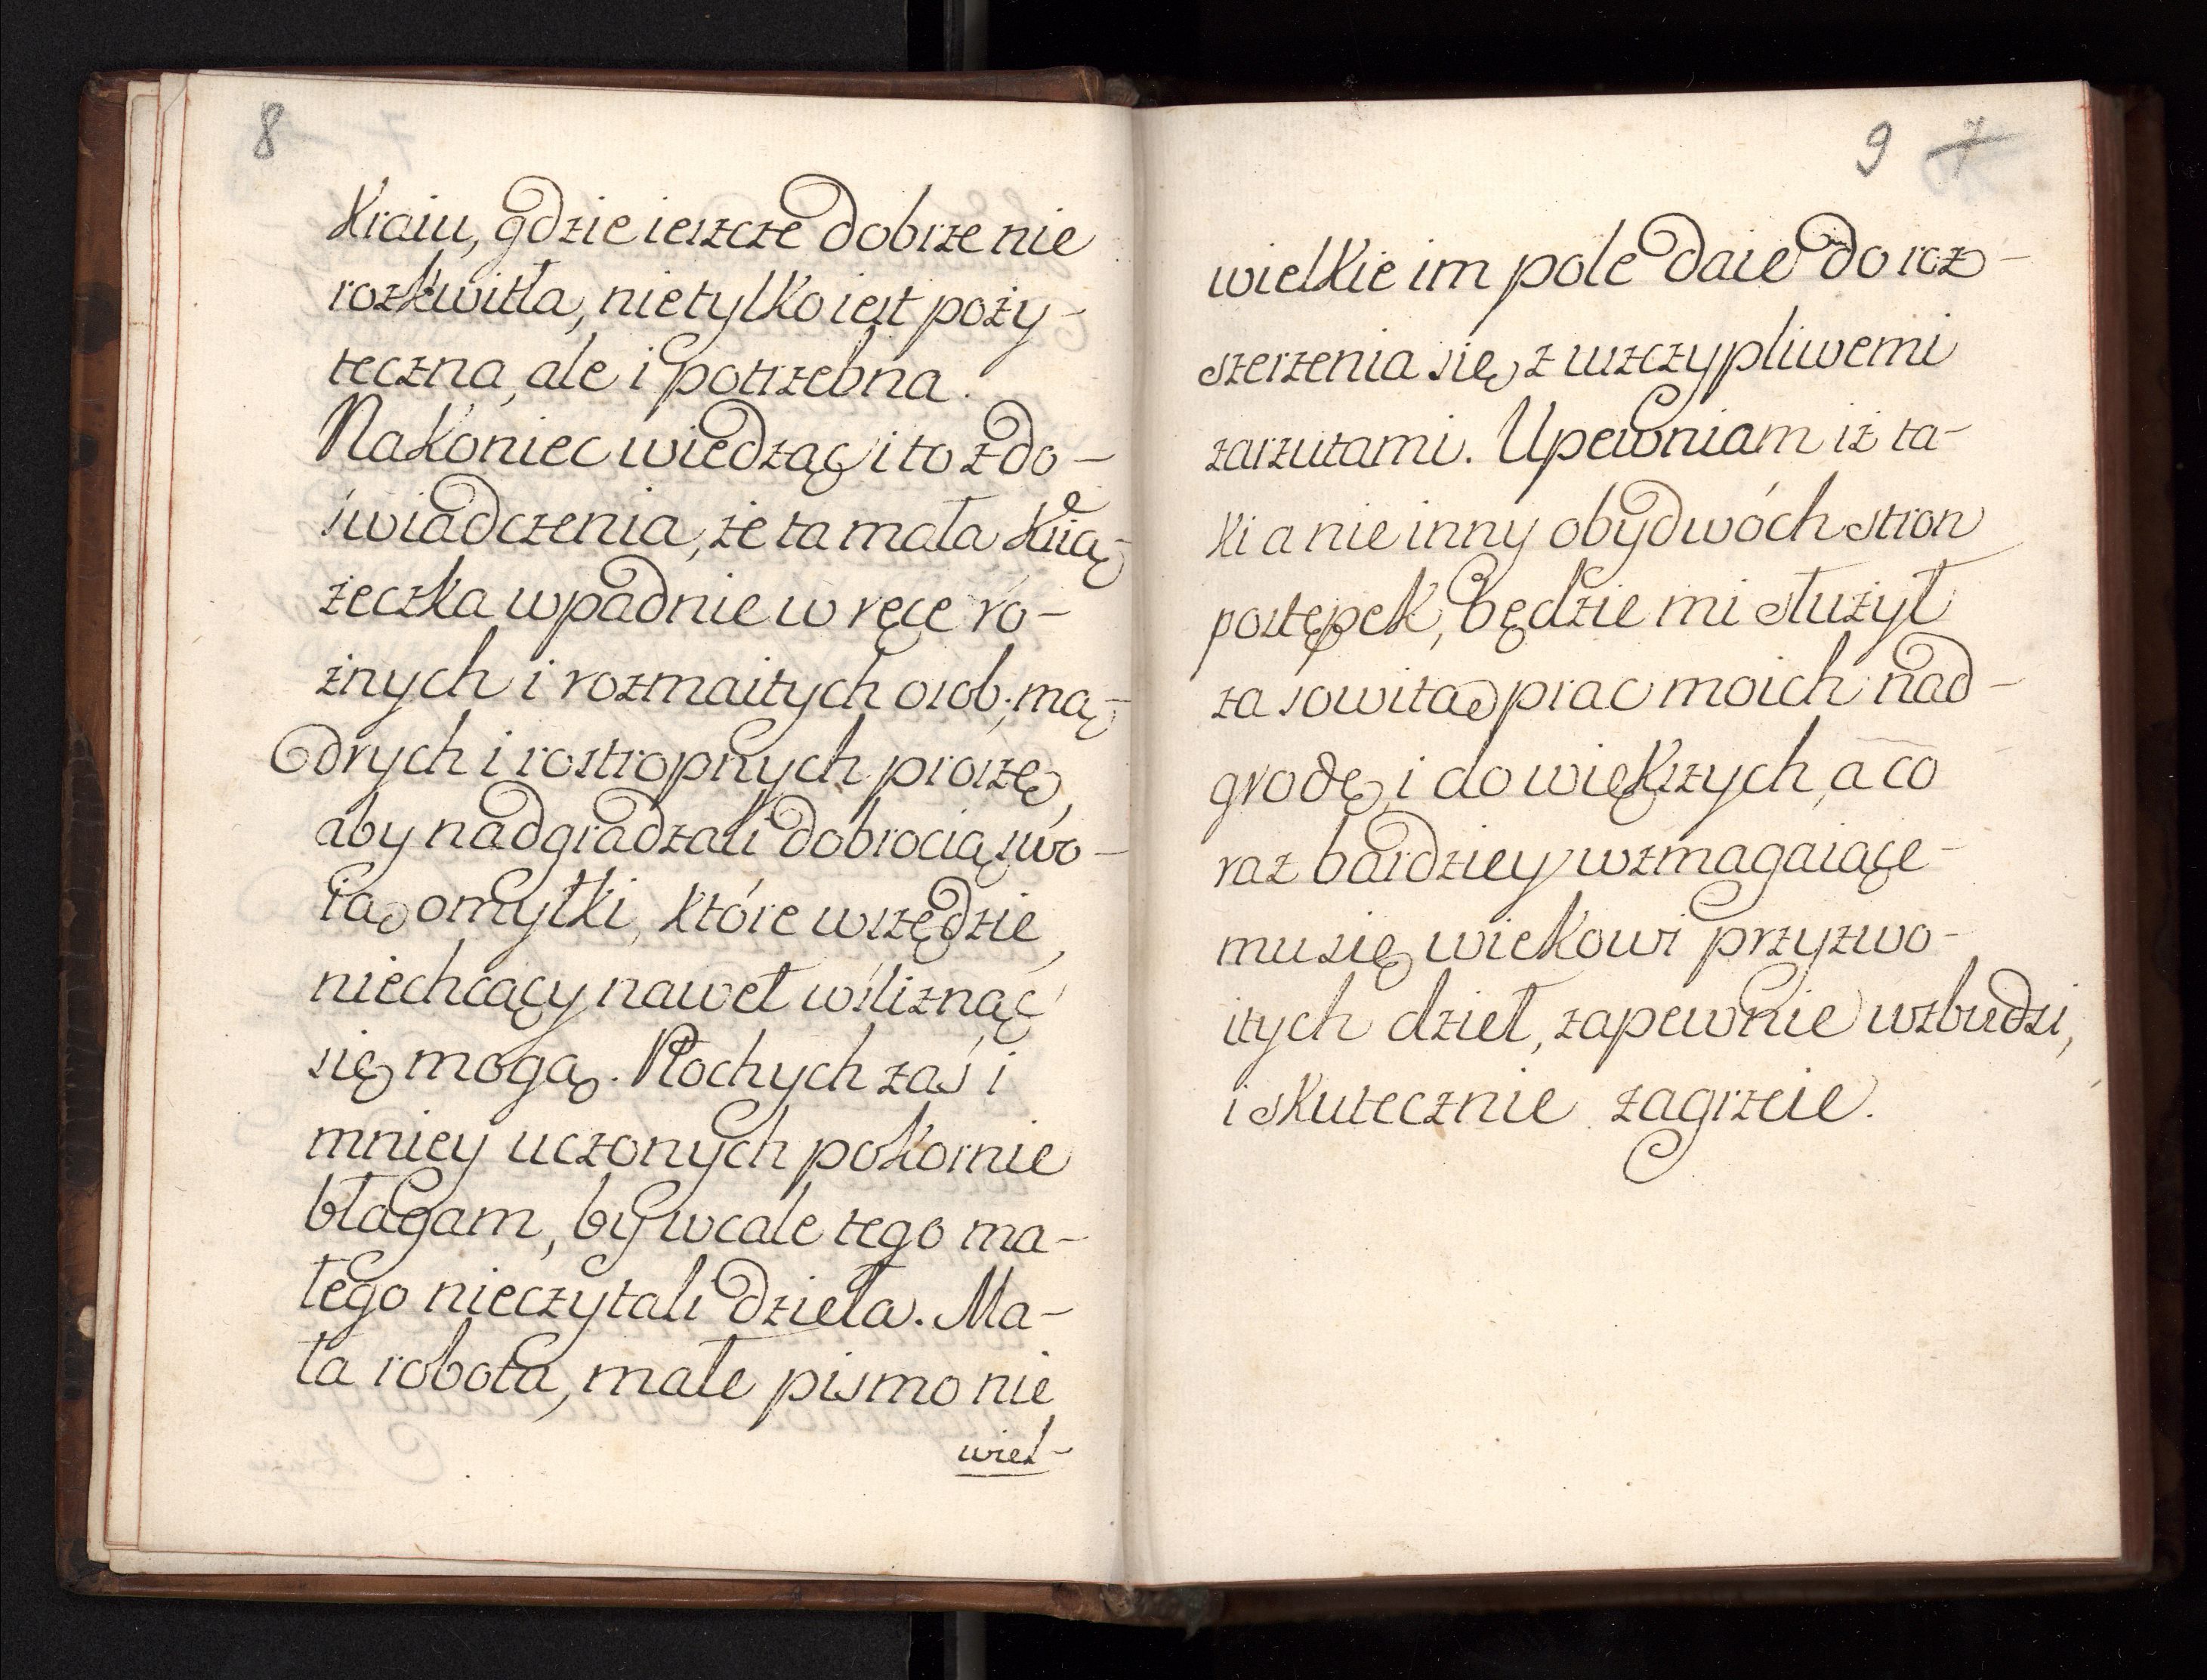 8
Kraiu, gdzie ieszcze dobrze nie
rozkwitła, nietylko iest poży-
teczna, ale i potrzebna.
Nakoniec wiedząc i to z do-
świadczenia, że ta mała Kśią-
żeczka wpadnie w ręce ro-
żnych i rozmaitych osob; mą-
drych i rostropnych proszę,
aby nadgradzali dobrocią swo-
ią omyłki, które wszędzie,
niechcący nawet wśliznąć
się mogą. Płochych zaś i
mniey uczonych pokornie
błagam, by wcale tego ma-
łego nieczytali dzieła. Ma-
ła robota, małe pismo nie
wiel-
9 7
wielkie im pole daie do roz-
szerzenia się, z uszczypliwemi
zarzutami. Upewniam iż ta-
ki a nie inny obydwóch stron
postępek, będzie mi służył
za sowitą prac moich nad-
grodę, i do większych, a co
raz bardziey wzmagaiące-
mu się wiekowi przyzwo-
itych dzieł, zapewnie wzbudzi,
i skutecznie zagrzeie.